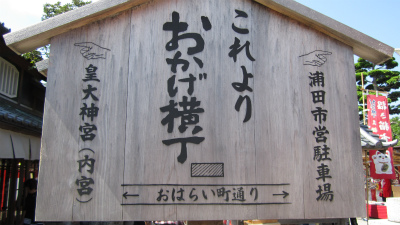 これより
おかげ横丁
浦田市営駐車場
皇大神宮（内宮）
おはらい町通り